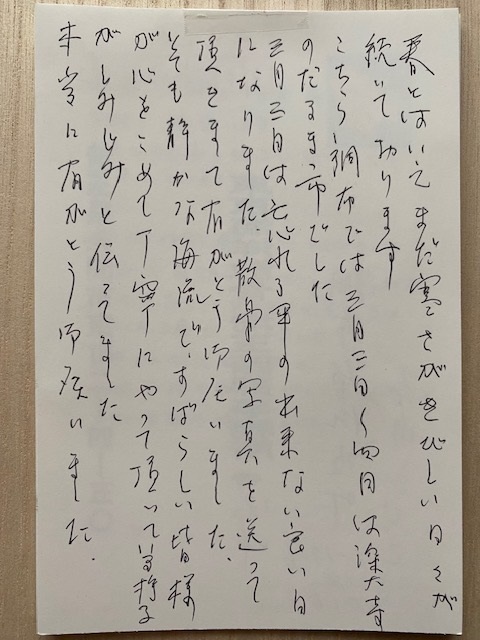 春とはいえまだ寒さがきびしい日々が
続いて居ります
こちら調布では三月三日〜四日は深大寺
のだるま市でした
三月三日は忘れる事の出来ない良い日
になりました。散骨の写真を送って
頂きまして有がとう御座いました。
とても静かな海流で、すばらしい皆様
が心をこめて丁寧にやって頂いて気持
がしみじみと伝ってきました
本当に有がとう御座いました.